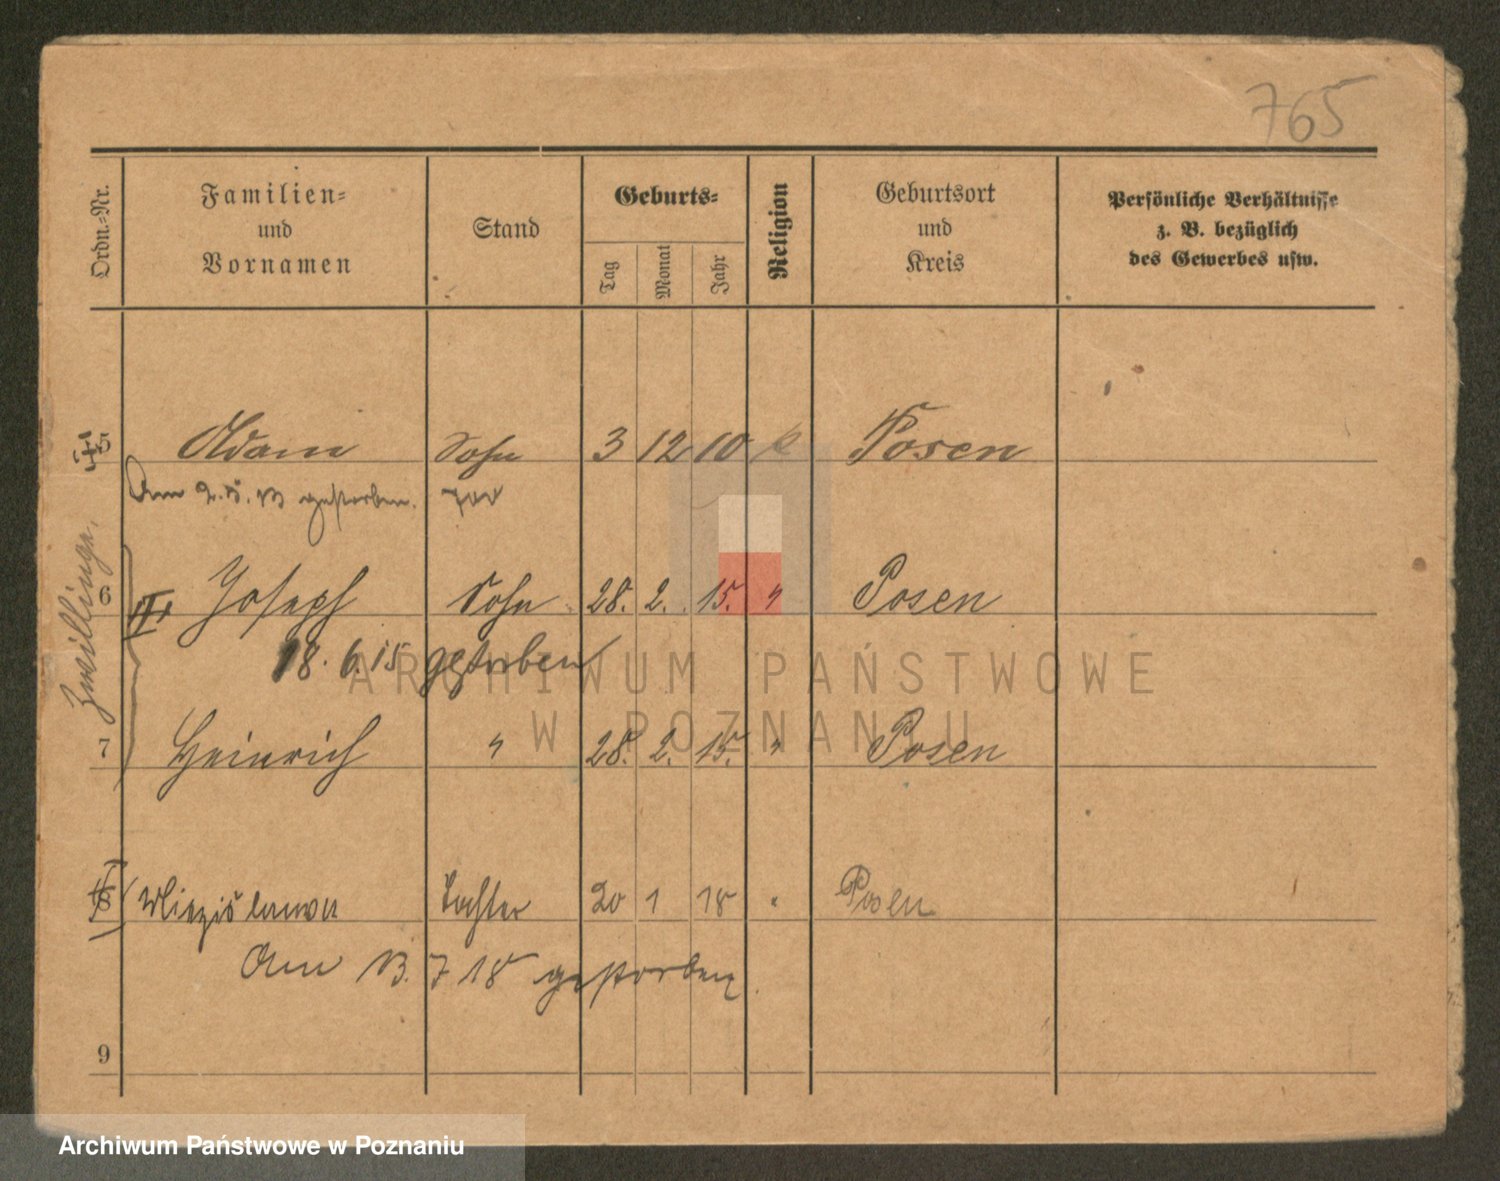 765
Ordn.-Nr.
Familien-
und
Vornamen
Stand
Geburts-
Tag
Monat
Jahr
Religion
Geburtsort
und
Kreis
Persönliche Verhältnisse
z. B. bezüglich
des Gewerbes usw.
5 Adam Sohn 3 12 10 k Posen
Am 2. 5. 13 gestorben.
Zwillinge.
6 Joseph Sohn 28. 2. 15. " Posen
18. 6. 15 gestorben
7 Heinrich " 28. 2. 15. " Posen
8 Tochter 20 1 18 " Posen
Am 13. 7 18 gestorben.
9
ARCHIWUM PAŃSTWOWE
W POZNANIU
Archiwum Państwowe w Poznaniu